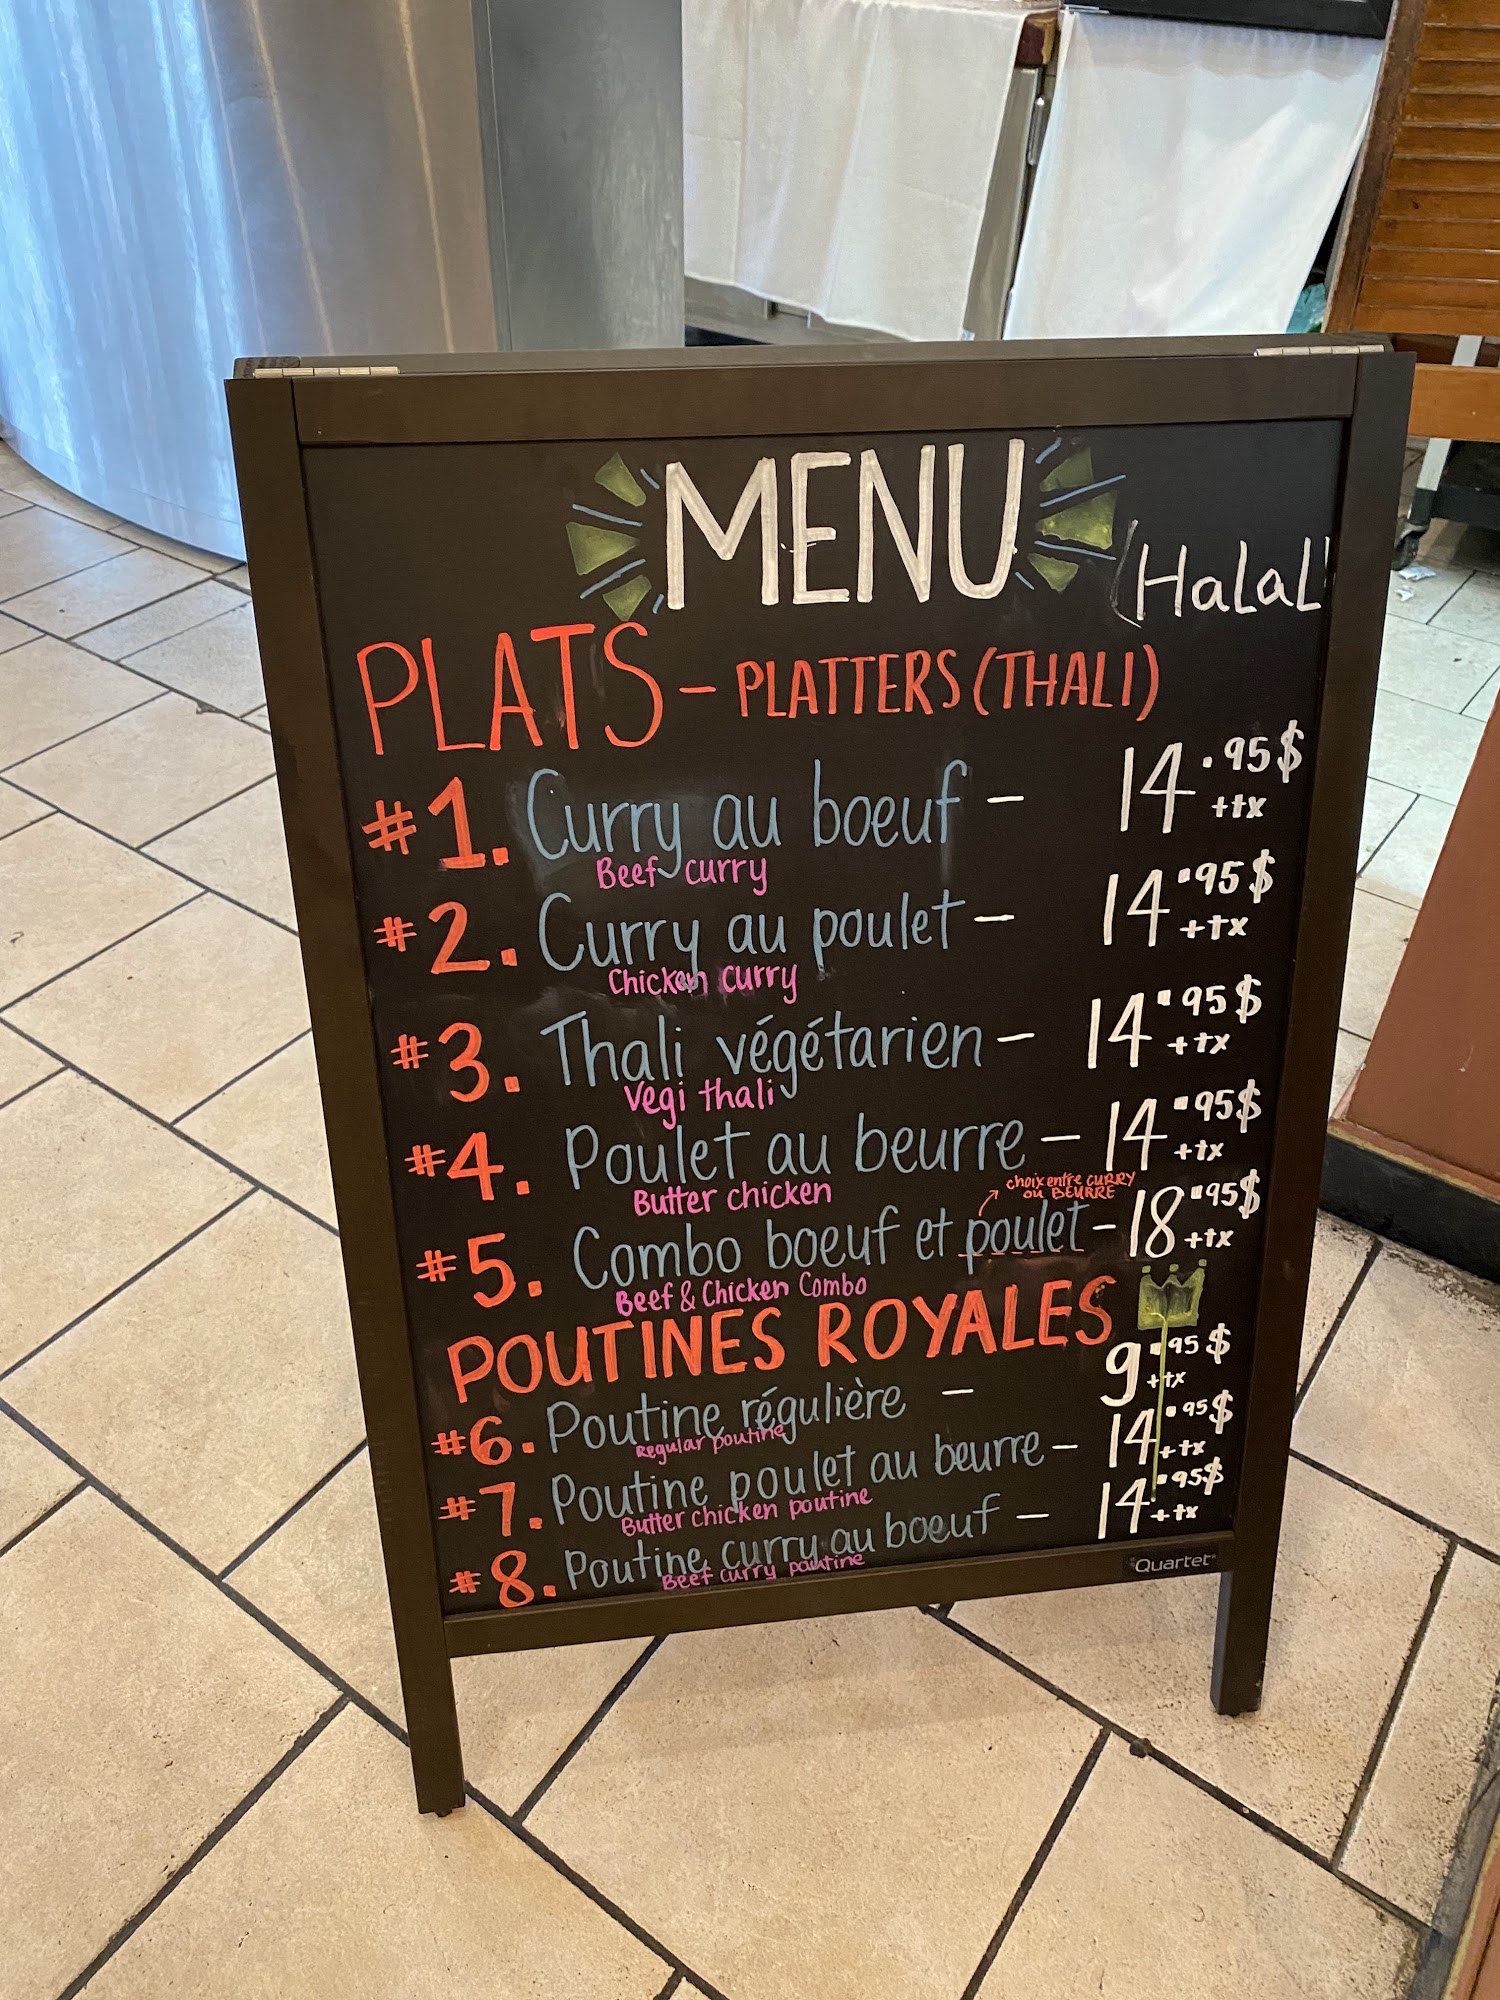 MENU
(HaLaL)
PLATS - PLATTERS (THALI)
#1. Curry au boeuf - 14.95$ +tx
Beef curry
#2. Curry au poulet - 14.95$ +tx
Chicken curry
#3. Thali végétarien - 14.95$ +tx
Vegi thali
#4. Poulet au beurre - 14.95$ +tx
Butter chicken
choix entre CURRY
OU BEURRE
#5. Combo boeuf et poulet - 18.95$ +tx
Beef & Chicken Combo
POUTINES ROYALES
#6. Poutine régulière - 9.95$ +tx
Regular poutine
#7. Poutine poulet au beurre - 14.95$ +tx
Butter chicken poutine
#8. Poutine curry au boeuf - 14.95$ +tx
Beef curry poutine
Quartet